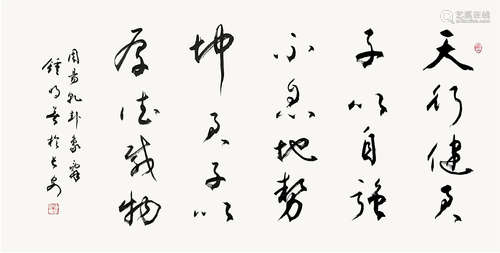 天行健君
子以自强
不息地势
坤君子以
厚德载物
周易乾卦象辞
钟明善于长安